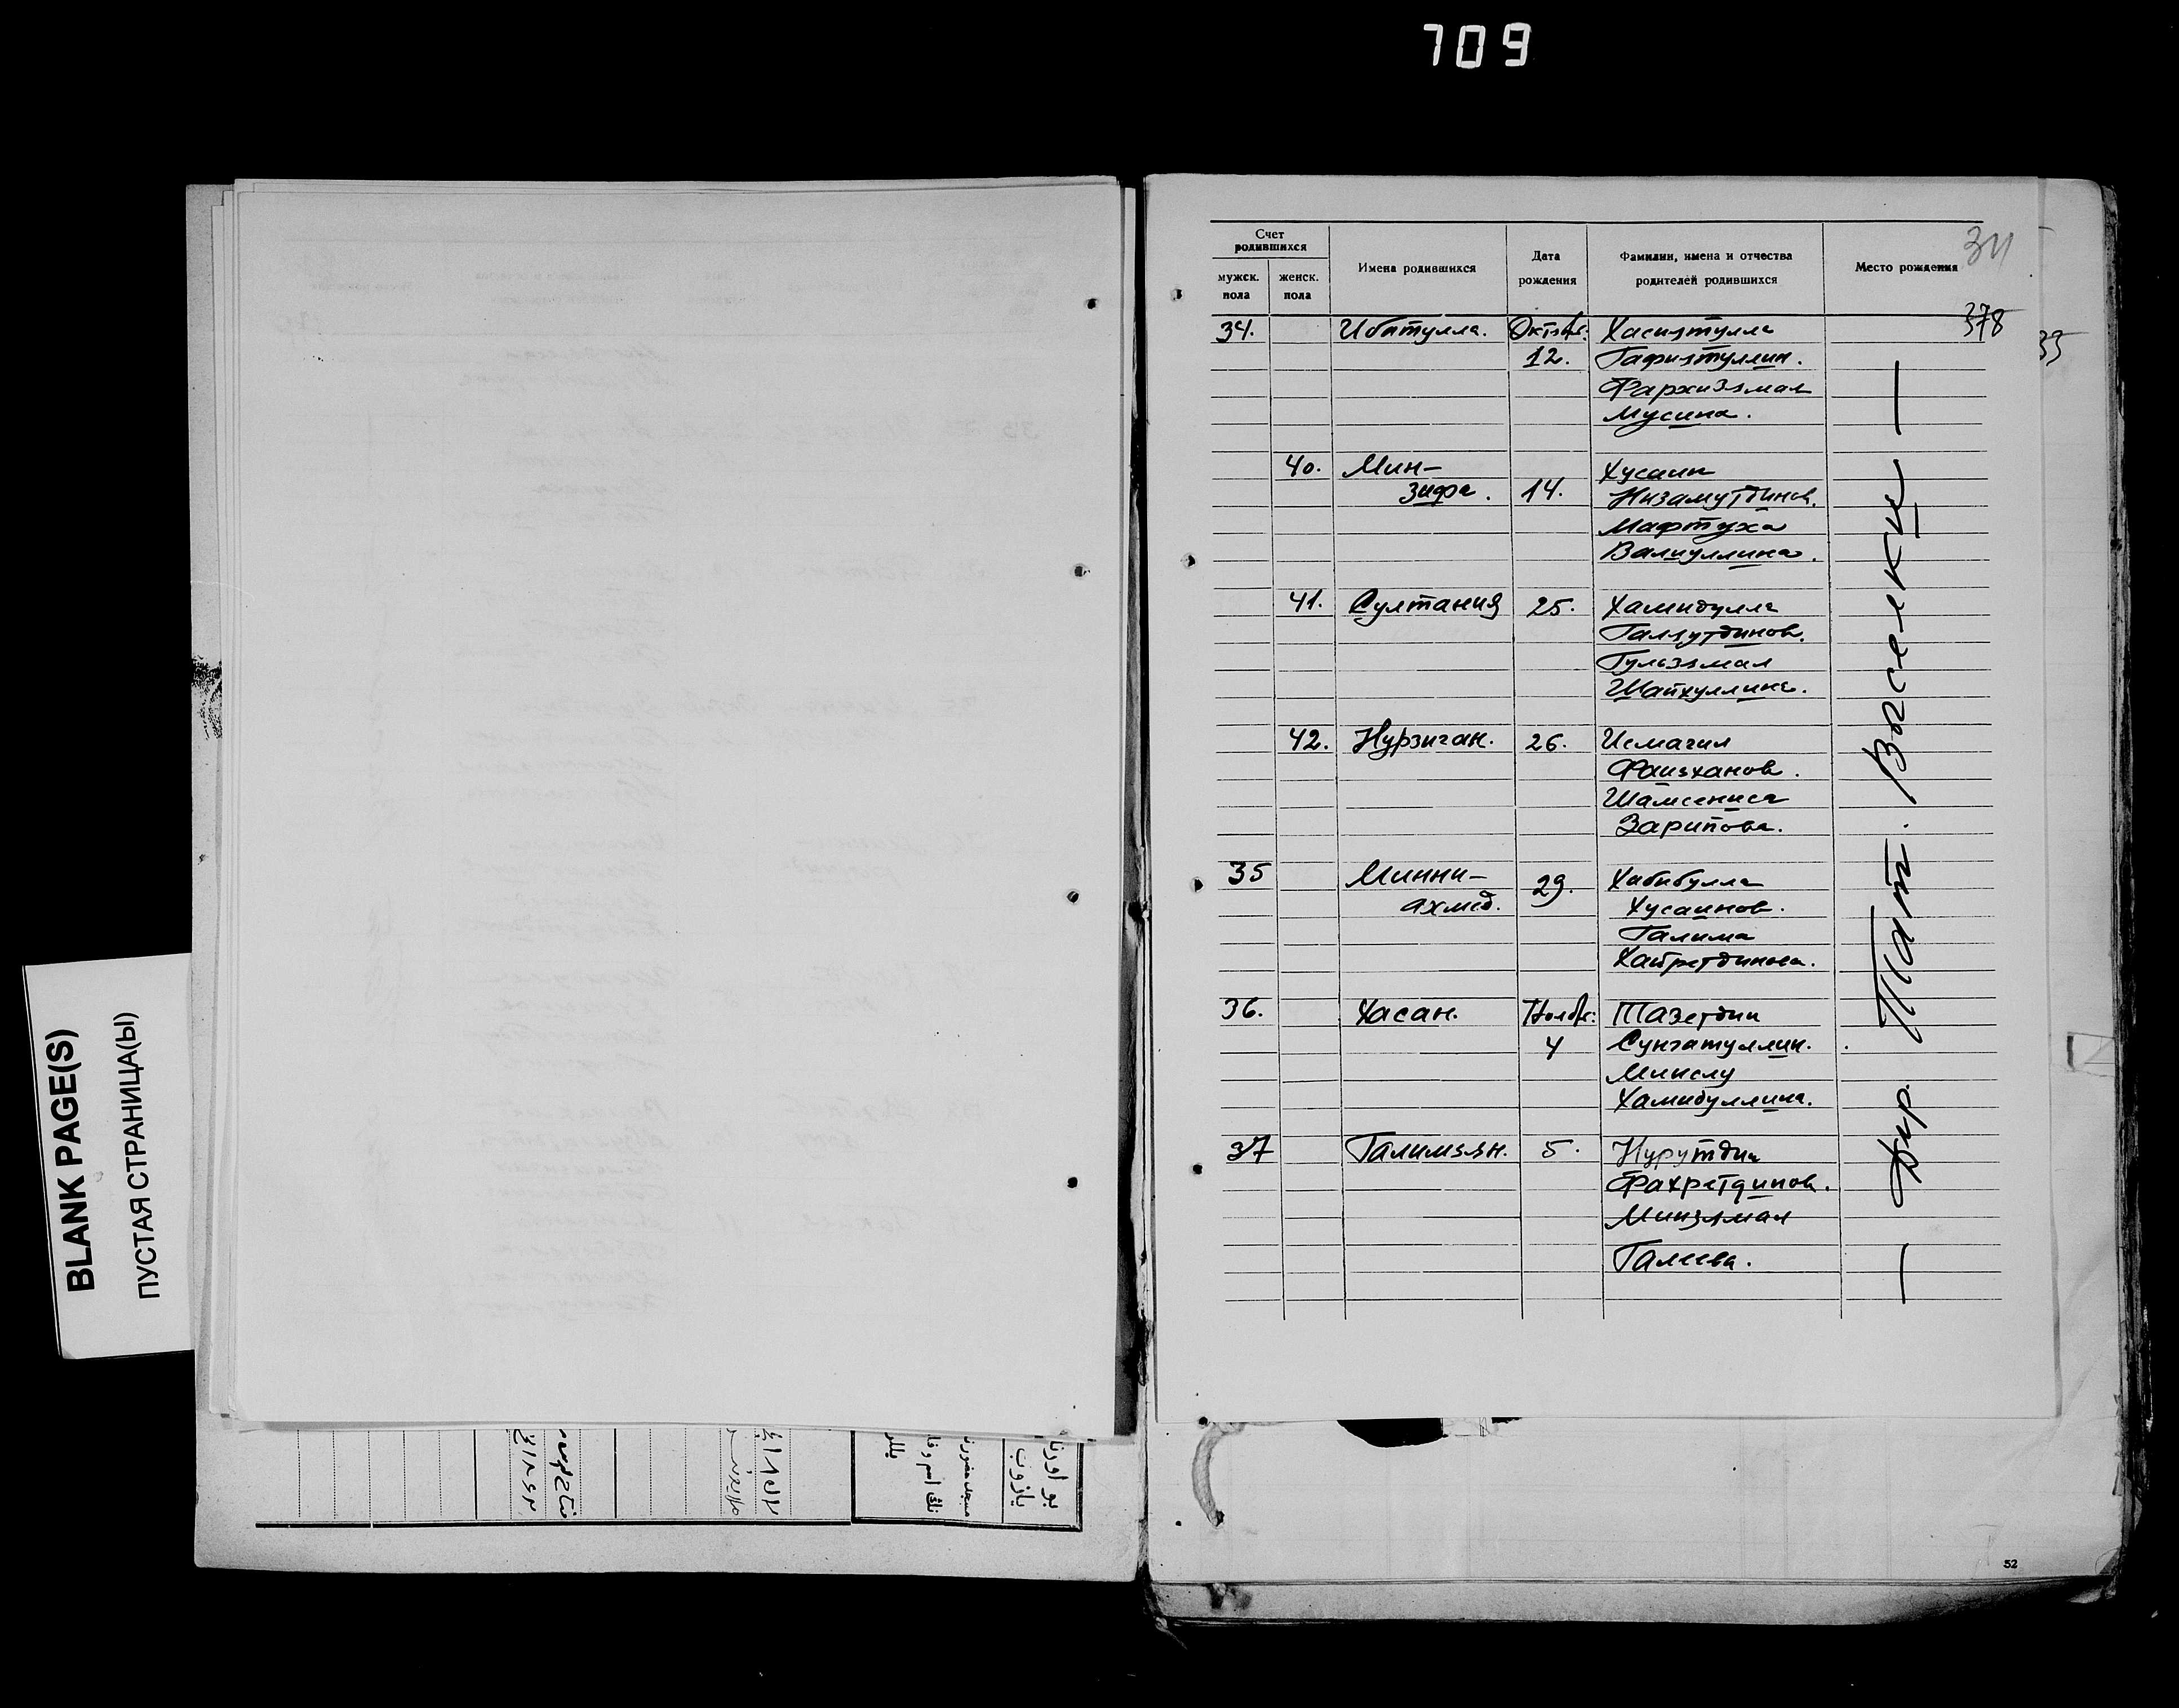 709
BLANK PAGE(S)
ПУСТАЯ СТРАНИЦА(Ы)
Счет родившихся
мужск. пола
женск. пола
Имена родившихся
Дата рождения
Фамилии, имена и отчества родителей родившихся
Место рождения
34
378
33
34. Ибатулла. Октябр: Хасиятулла
12. Гафиятуллин.
Фархиззмал
Мусина.
40. Мин- Хусаин
зифа. 14. Низамутдинов.
Мафтуха
Валиуллина.
41. Султания 25. Хамидулла
Галяутдинов.
Гульззмал
Шайхуллина.
42. Нурзиган. 26. Исмагил
Фаизханов.
Шамсениса
Зарипова.
35 Минни- Хабибулла
ахмед. 29. Хусаинов.
Галима
Хайретдинова.
36. Хасан. Ноябр: Тазетдин
4 Сунгатуллин.
Миңслу
Хамидуллина.
37 Галимзян. 5. Нурутдин
Фахретдинов.
Минзямал
Галеева.
— Дер. Тат. Васелки —
52